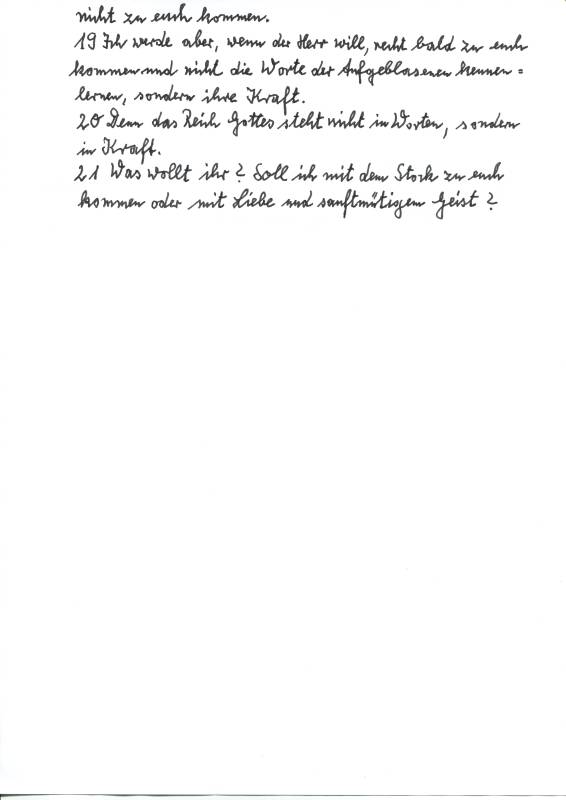 nicht zu euch kommen.
19 Ich werde aber, wenn der Herr will, recht bald zu euch
kommen und nicht die Worte der Aufgeblasenen kennen=
lernen, sondern ihre Kraft.
20 Denn das Reich Gottes steht nicht in Worten, sondern
in Kraft.
21 Was wollt ihr? Soll ich mit dem Stock zu euch
kommen oder mit Liebe und sanftmütigem Geist?